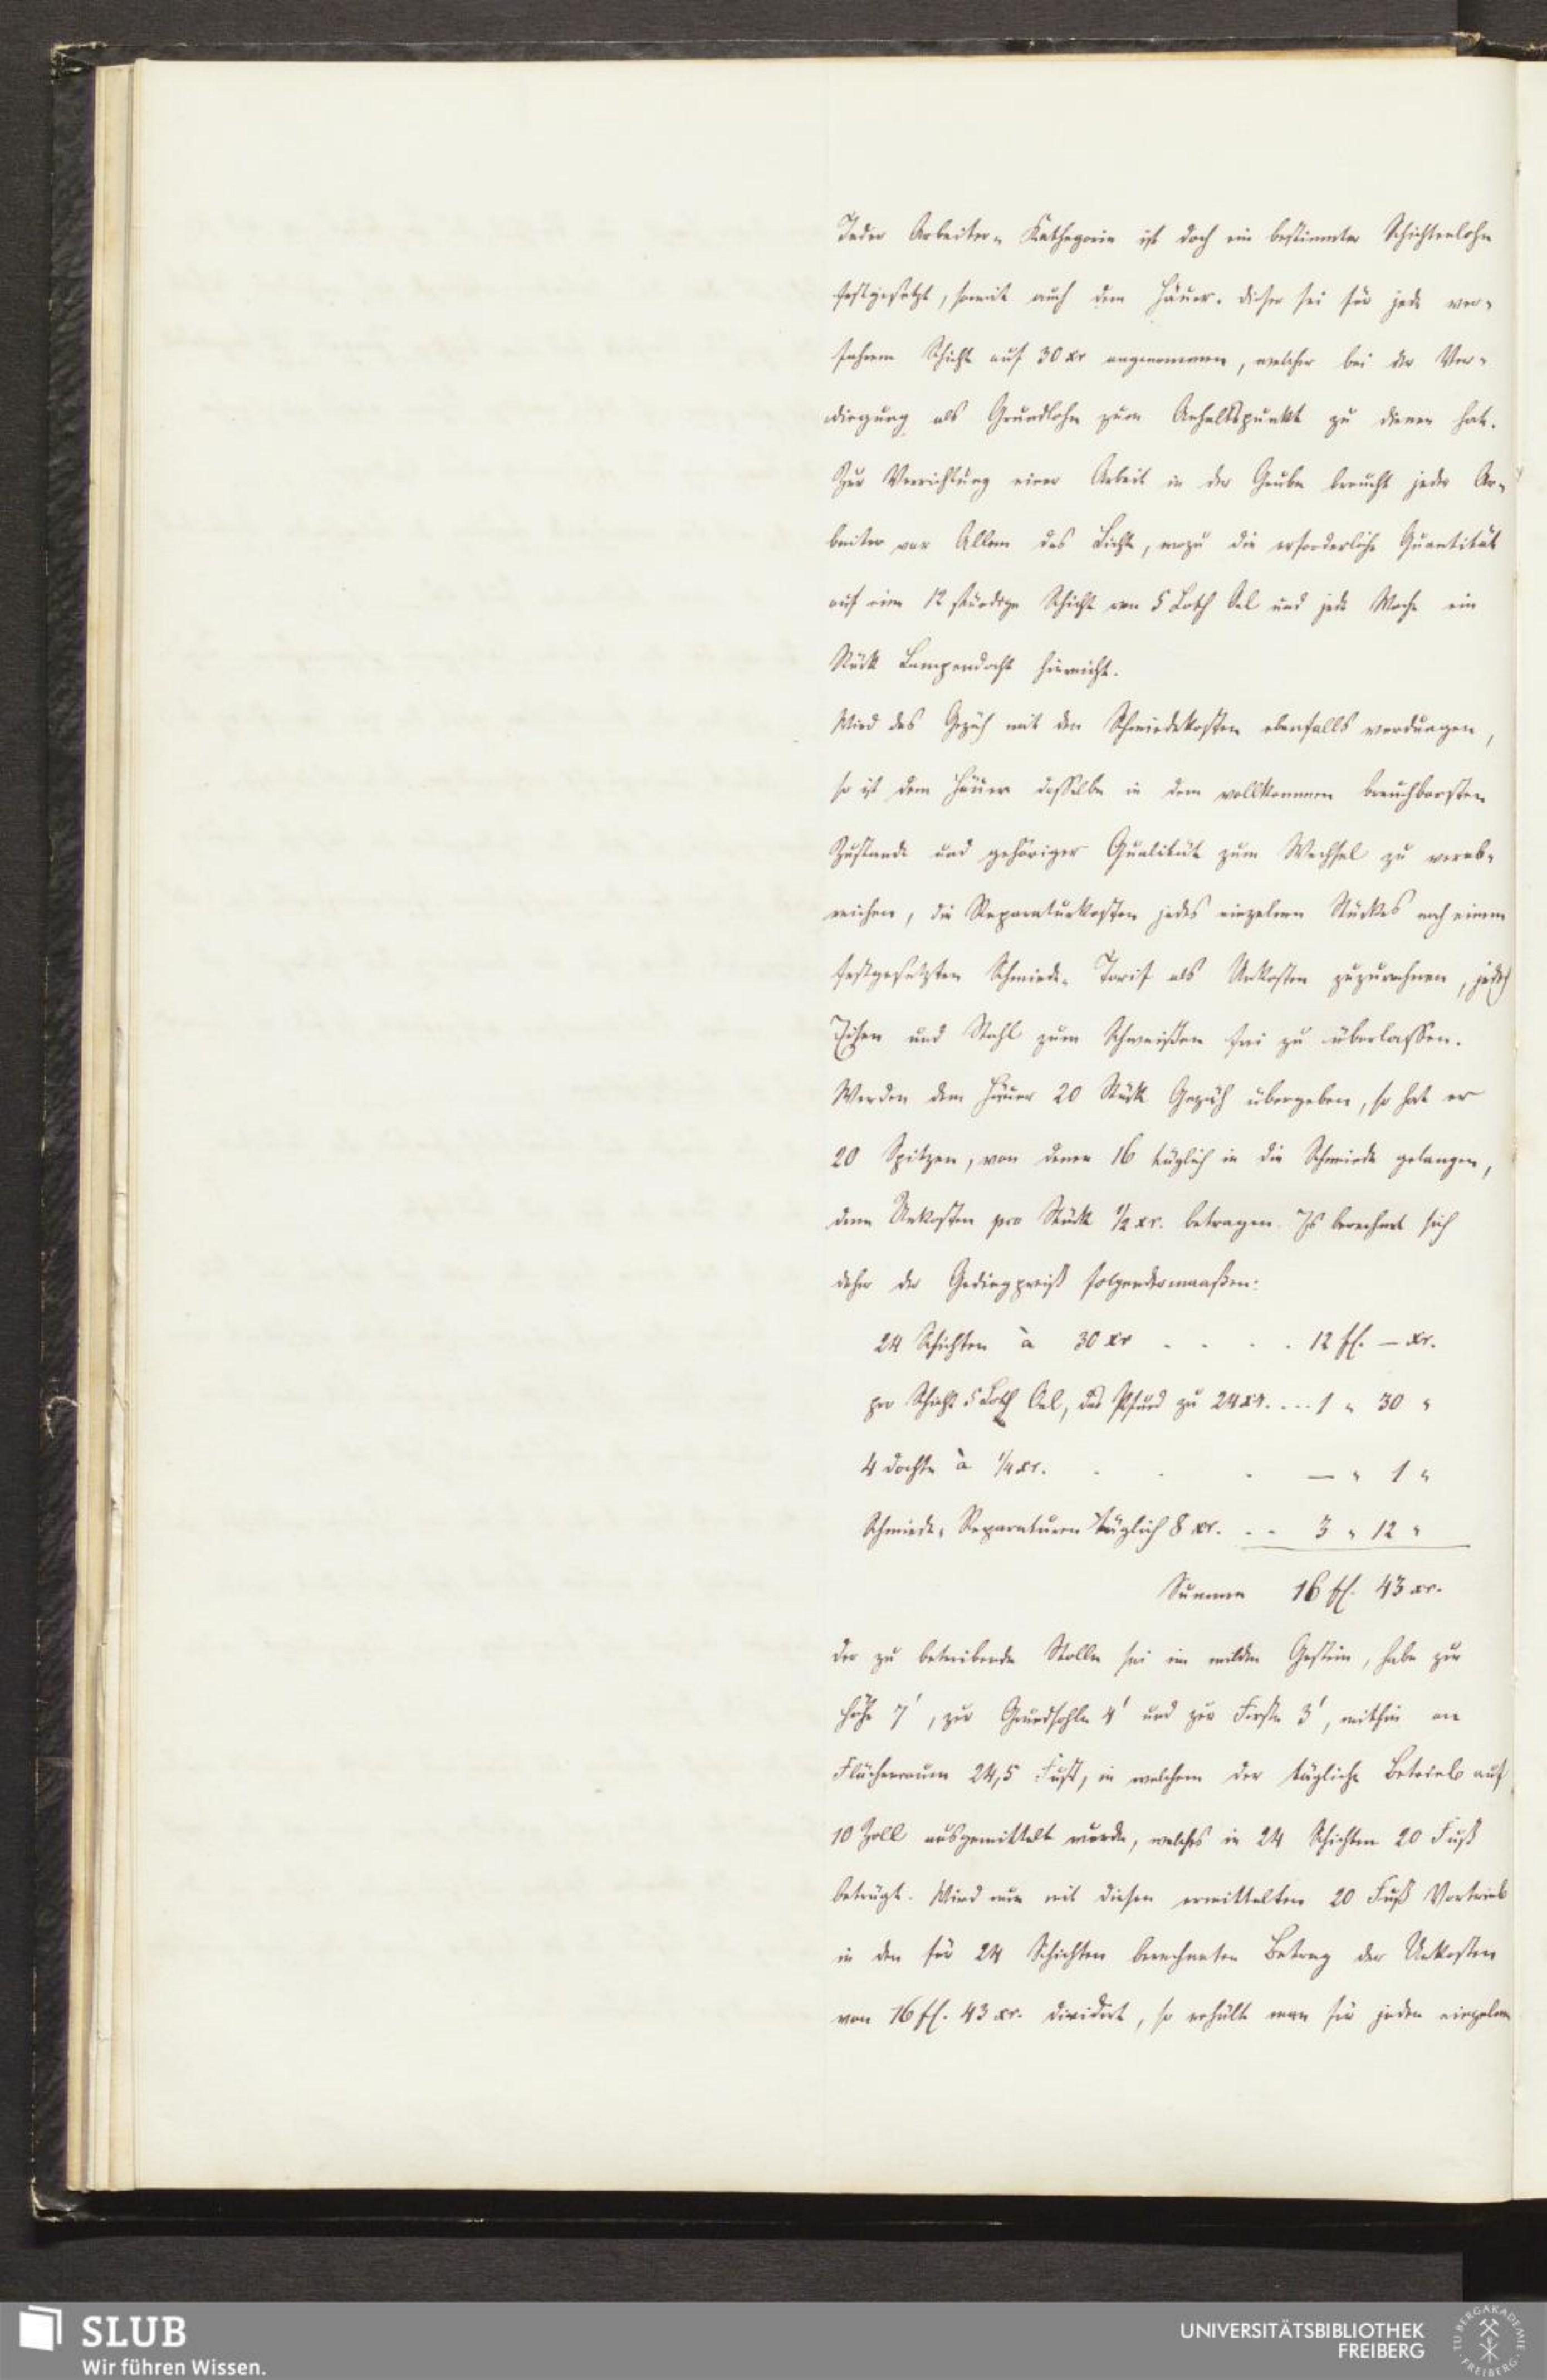 Jeder Arbeiter-Kathegorie ist doch ein bestimmter Schichtenlohn
festgesetzt, somit auch dem Häuer. Dieser sei für jede ver-
fahrene Schicht auf 30 xr angenommen, welcher bei der Ver-
dingung als Grundlohn zum Anhaltspunkt zu dienen hat.
Zur Verrichtung einer Arbeit in der Grube braucht jeder Ar-
beiter vor Allem das Licht, wozu die erforderliche Quantität
auf eine 12 stündige Schicht von 5 Loth Oel und jede Woche ein
Stück Lampendocht hinreicht.
Wird das Gezäh mit den Schmiedekosten ebenfalls verdungen,
so ist dem Häuer dasselbe in dem vollkommen brauchbarsten
Zustande und gehöriger Qualität zum Wechsel zu verab-
reichen, die Reparaturkosten jedes einzelnen Stückes nach einem
festgesetzten Schmiede-Tarif als Unkosten zuzurechnen, jedoch
Eisen und Stahl zum Schweißen frei zu überlassen.
Werden dem Häuer 20 Stück Gezäh übergeben, so hat er
20 Spitzen, von denen 16 täglich in die Schmiede gelangen,
deren Unkosten pro Stück 1/2 xr. betragen. Es berechnet sich
daher der Gedingpreiß folgendermaaßen:
24 Schichten à 30 xr . . . . 12 fl. — xr.
pro Schicht 5 Loth Oel, das Pfund zu 24 xr. ... 1 " 30 "
4 Dochte à 1/4 xr. . . . — " 1 "
Schmiede-Reparaturen täglich 8 xr. . . 3 " 12 "
Summe 16 fl. 43 xr.
Der zu betreibende Stolln sei im milden Gestein, habe zur
Höhe 7', zur Grundsohle 4' und zur Firste 3', mithin an
Flächenraum 24,5 Fuß, in welchem der tägliche Betrieb auf
10 Zoll ausgemittelt wurde, welches in 24 Schichten 20 Fuß
beträgt. Wird nun mit diesen ermittelten 20 Fuß Vortrieb
in den für 24 Schichten berechneten Betrag der Unkosten
von 16 fl. 43 xr. dividirt, so erhält man für jeden einzelnen
SLUB
Wir führen Wissen.
UNIVERSITÄTSBIBLIOTHEK
FREIBERG
TU BERGAKADEMIE
FREIBERG